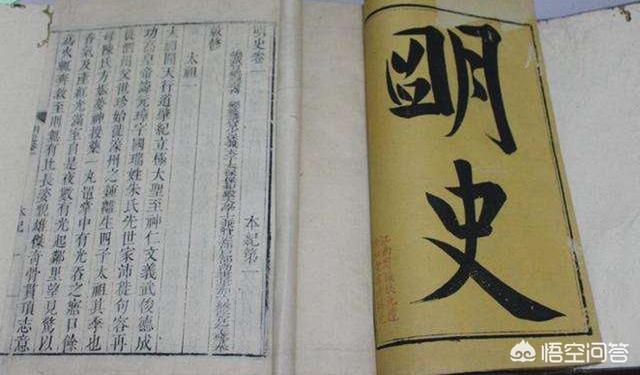 明史
明史卷一
本紀第一
敕修
太祖一
太祖開天行道肇紀立極大聖至神仁文義武俊德成
功高皇帝諱元璋字國瑞姓朱氏先世家沛徙句容再
徙泗州父世珍始徙濠州之鍾離生四子太祖其季也
母陳氏方娠夢神授藥一丸置掌中有光吞之寤口餘
香氣及產紅光滿室自是夜數有光起鄰里望見驚以
為火輒奔救至則無有比長姿貌雄傑奇骨貫頂志意
本紀
悟空问答